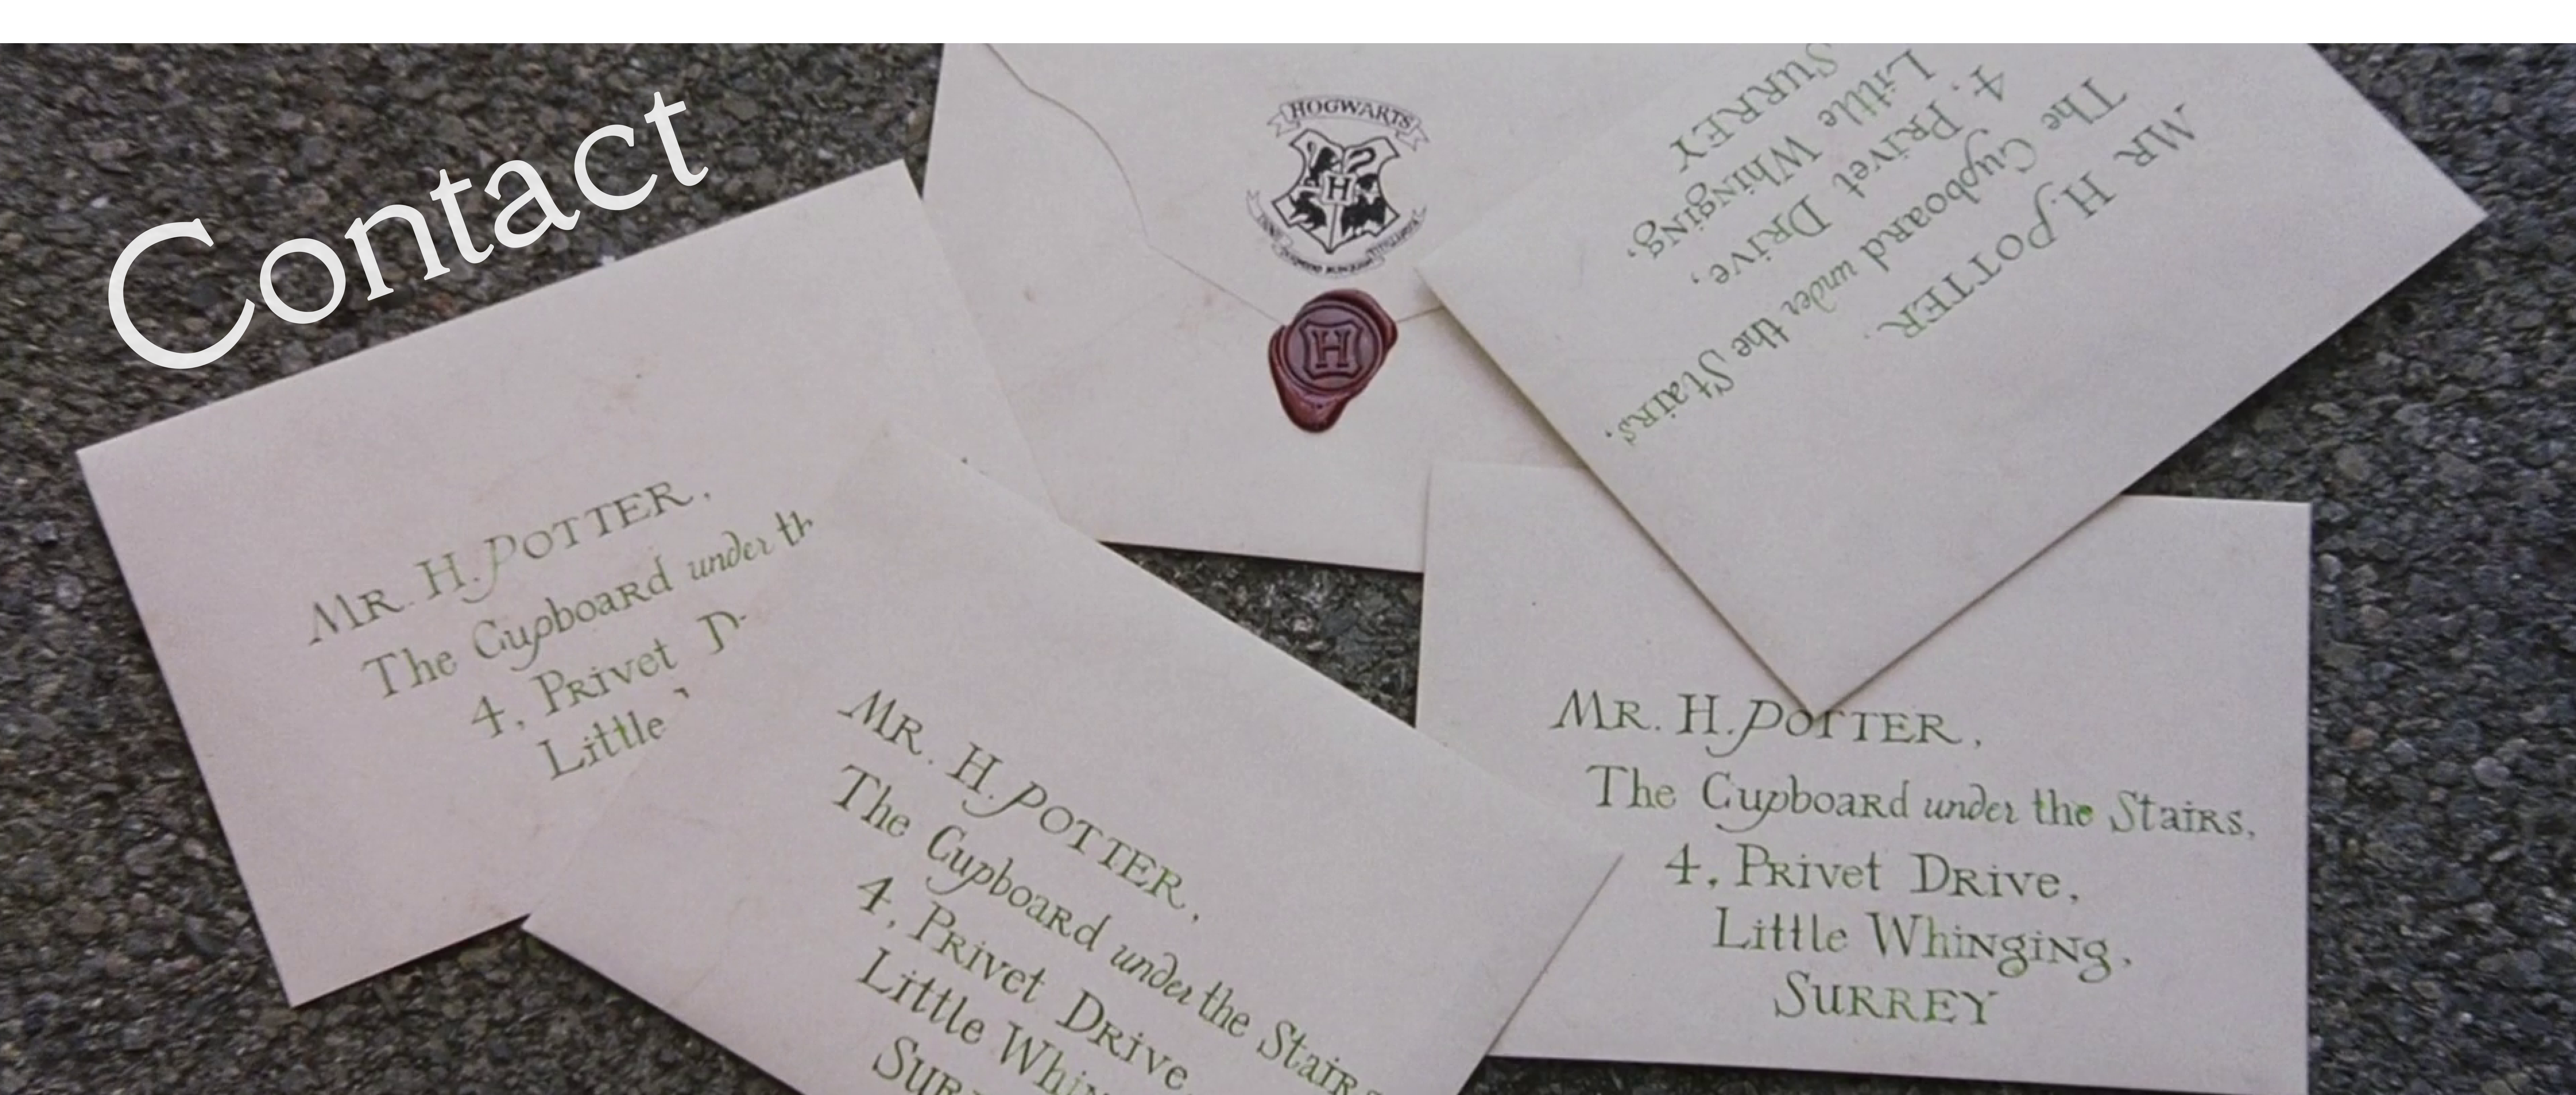 Contact
HOGWARTS
H
H
MR H. POTTER,
The Cupboard under the Stairs,
4, Privet Drive,
Little Whinging,
SURREY
MR. H. POTTER,
The Cupboard under th
4, Privet D
Little
MR. H. POTTER,
The Cupboard under the Stairs
4, Privet Drive
Little Whin
SURR
MR. H. POTTER,
The Cupboard under the Stairs,
4, Privet Drive,
Little Whinging,
SURREY